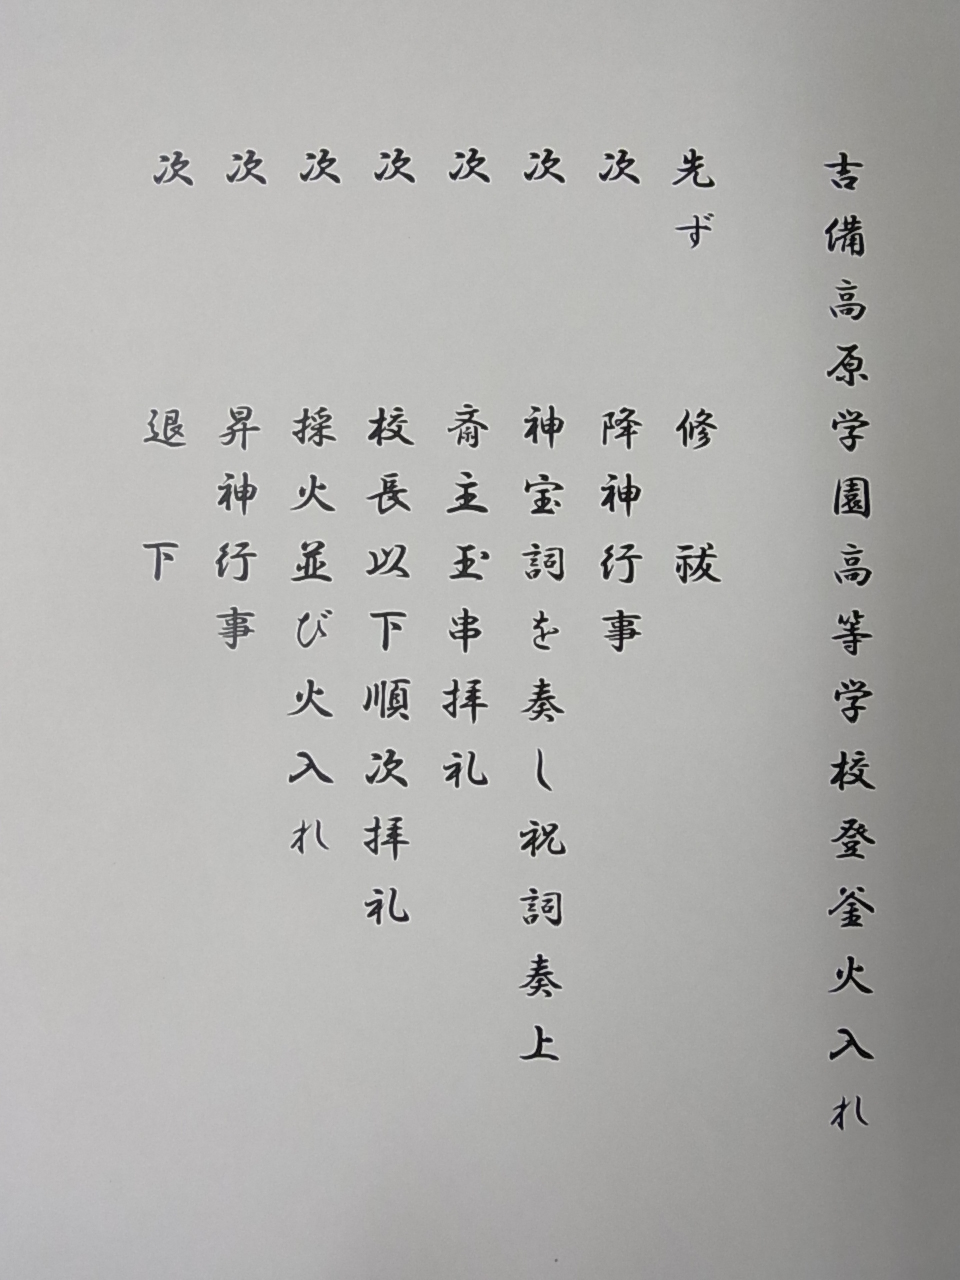 吉備高原学園高等学校登釜火入れ
先ず 修祓
次 降神行事
次 神宝詞を奏し祝詞奏上
次 斎主玉串拝礼
次 校長以下順次拝礼
次 採火並び火入れ
次 昇神行事
次 退下